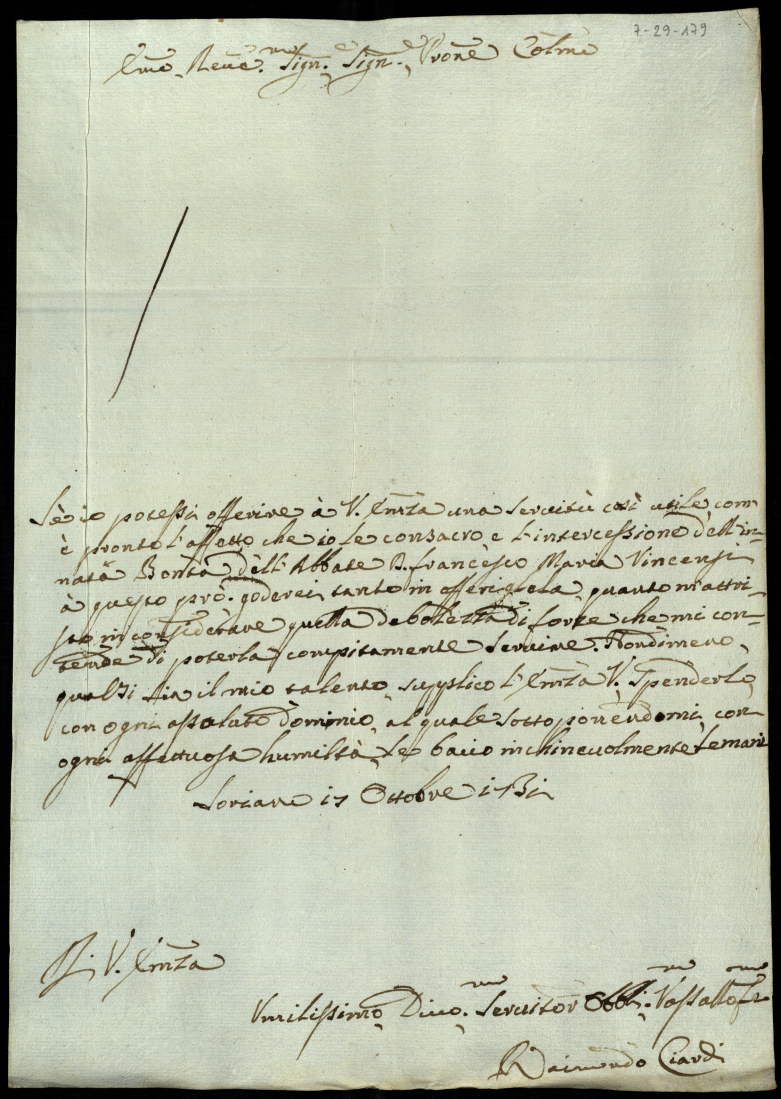 7-29-179
Emo, Reue.mo Sign.e Sign.e, Prone Colmo
Sè io potessi offerire à V. Emza una seruitù così utile, com'
è pronto l'affetto che io le consacro, e l'intercessione dell'in-
nata Bontà dell'Abbate D. Francesco Maria Vincenti
à questo prò, goderei tanto in offerigliela, quanto m'attri-
sto in considerare quella debolezza di forze che mi con-
tende di poterla compitamente seruire. Nondimeno,
qualsi sia il mio talento, supplico l'Emza V. spenderlo
con ogni assoluto dominio, al quale sottoponendomi, con
ogni affettuosa humiltà, le bacio inchineuolmente le mani
Soriano 17 Ottobre 1731
Di V. Emza
Vmilissimo, Diuo.mo Seruitor Obbli.mo Vassallo
Raimondo Ciardi